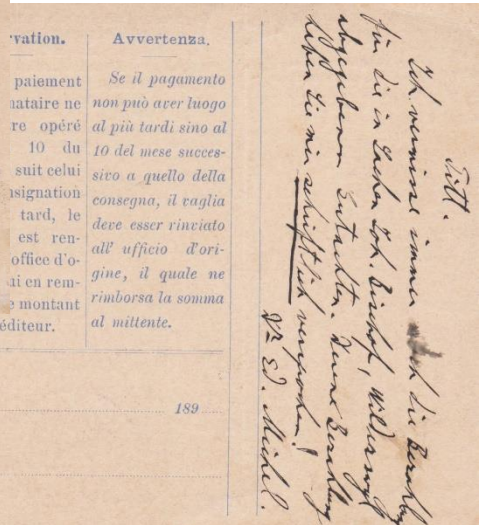 rvation.
paiement
nataire ne
re opéré
10 du
suit celui
nsignation
tard, le
est ren-
office d'o-
ui en rem-
e montant
éditeur.
Avvertenza.
Se il pagamento
non può aver luogo
al più tardi sino al
10 del mese succes-
sivo a quello della
consegna, il vaglia
deve esser rinviato
all' ufficio d'ori-
gine, il quale ne
rimborsa la somma
al mittente.
189
Titl.
Ich vermisse immer noch die Bezahlung
für die in Sachen Joh. Bischof, Wilderswyl
abgegebenen Gutachten. Deren Bezahlung
haben Sie mir schriftlich versprochen!
Dr Ed. Michel.